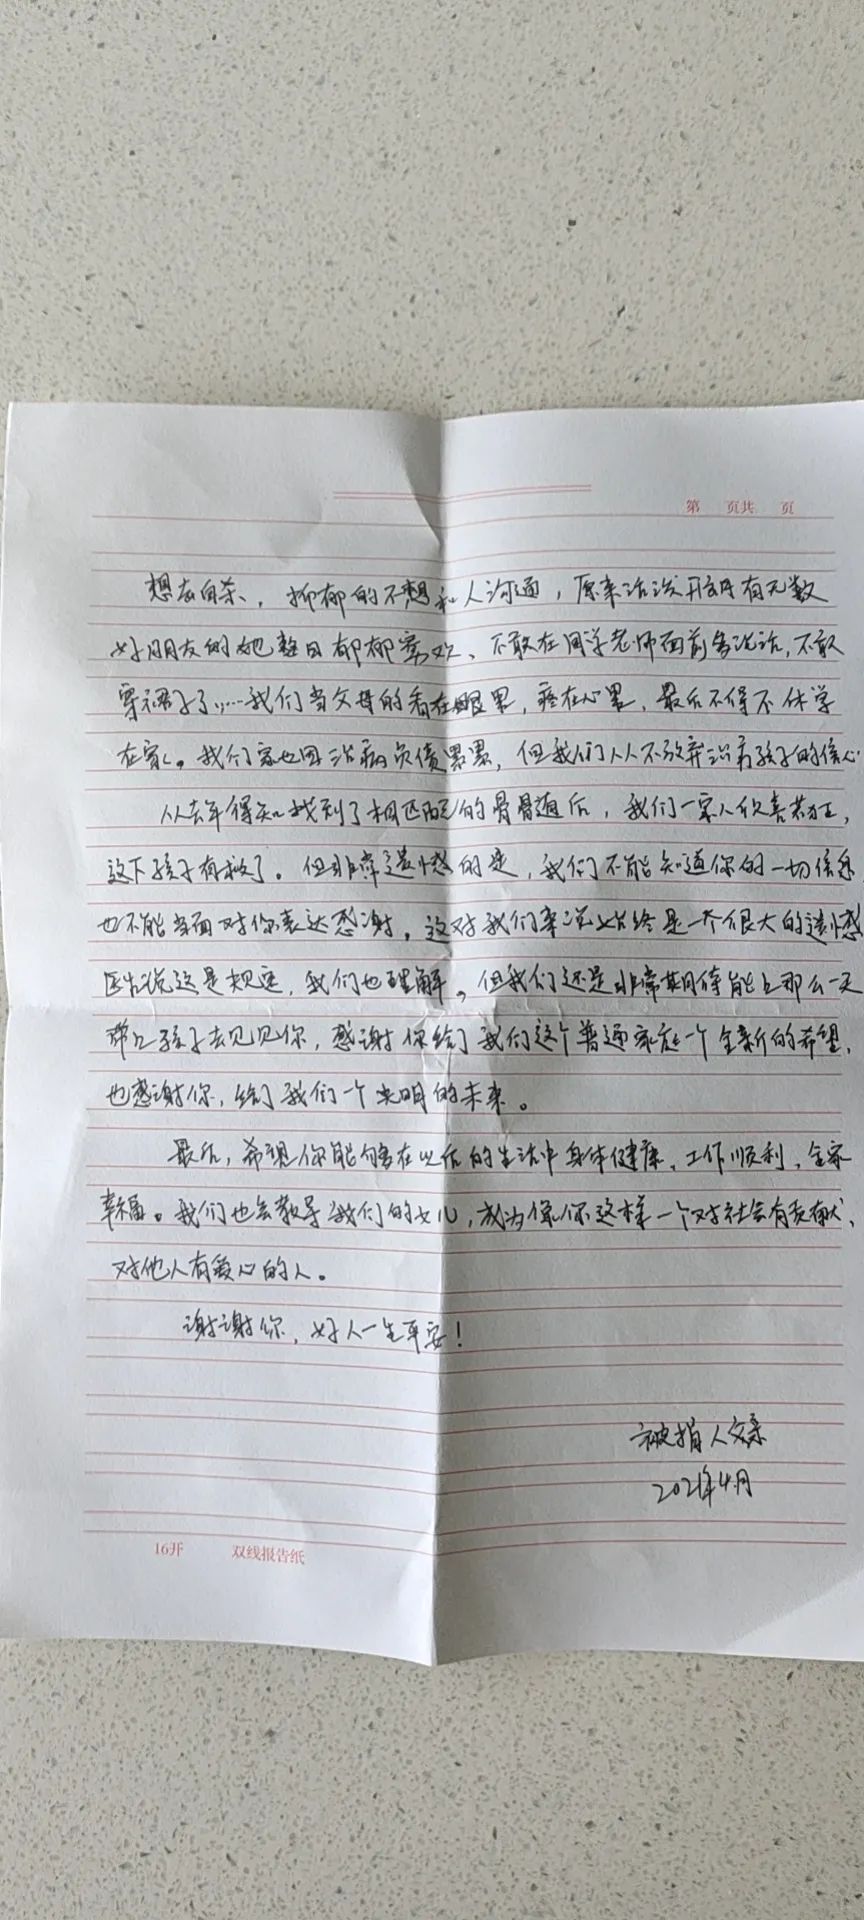 第 页共 页
想去自杀、抑郁的不想和人沟通，原来活泼开朗有无数
好朋友的她整日郁郁寡欢、不敢在同学老师面前多说话，不敢
穿裙子了……我们当父母的看在眼里，疼在心里，最后不得不休学
在家。我们家也因治病负债累累，但我们从不放弃治病孩子的信心
从去年得知找到了相匹配的骨骨道后，我们一家人欣喜若狂，
这下孩子有救了。但非常遗憾的是，我们不能知道你的一切信息
也不能当面对你表达感谢，这对我们来说始终是一个很大的遗憾
医生说这是规定，我们也理解，但我们还是非常期待能上那么一天
带上孩子去见见你，感谢你给了我们这个普通家庭一个全新的希望，
也感谢你，给了我们一个光明的未来。
最后，希望你能够在以后的生活中身体健康、工作顺利，全家
幸福。我们也会教导我们的女儿，成为像你这样一个对社会有贡献、
对他人有爱心的人。
谢谢你，好人一生平安！
被捐人父亲
2021年4月
16开 双线报告纸